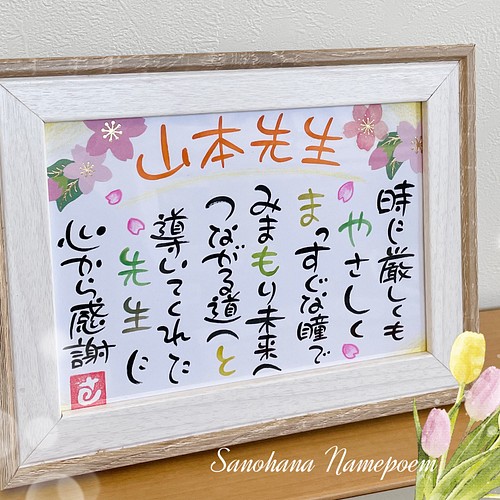 山本先生
時に厳しくも
やさしく
まっすぐな瞳で
みまもり未来へ
つながる道へと
導いてくれた
先生に
心から感謝
Sanohana Namepoem